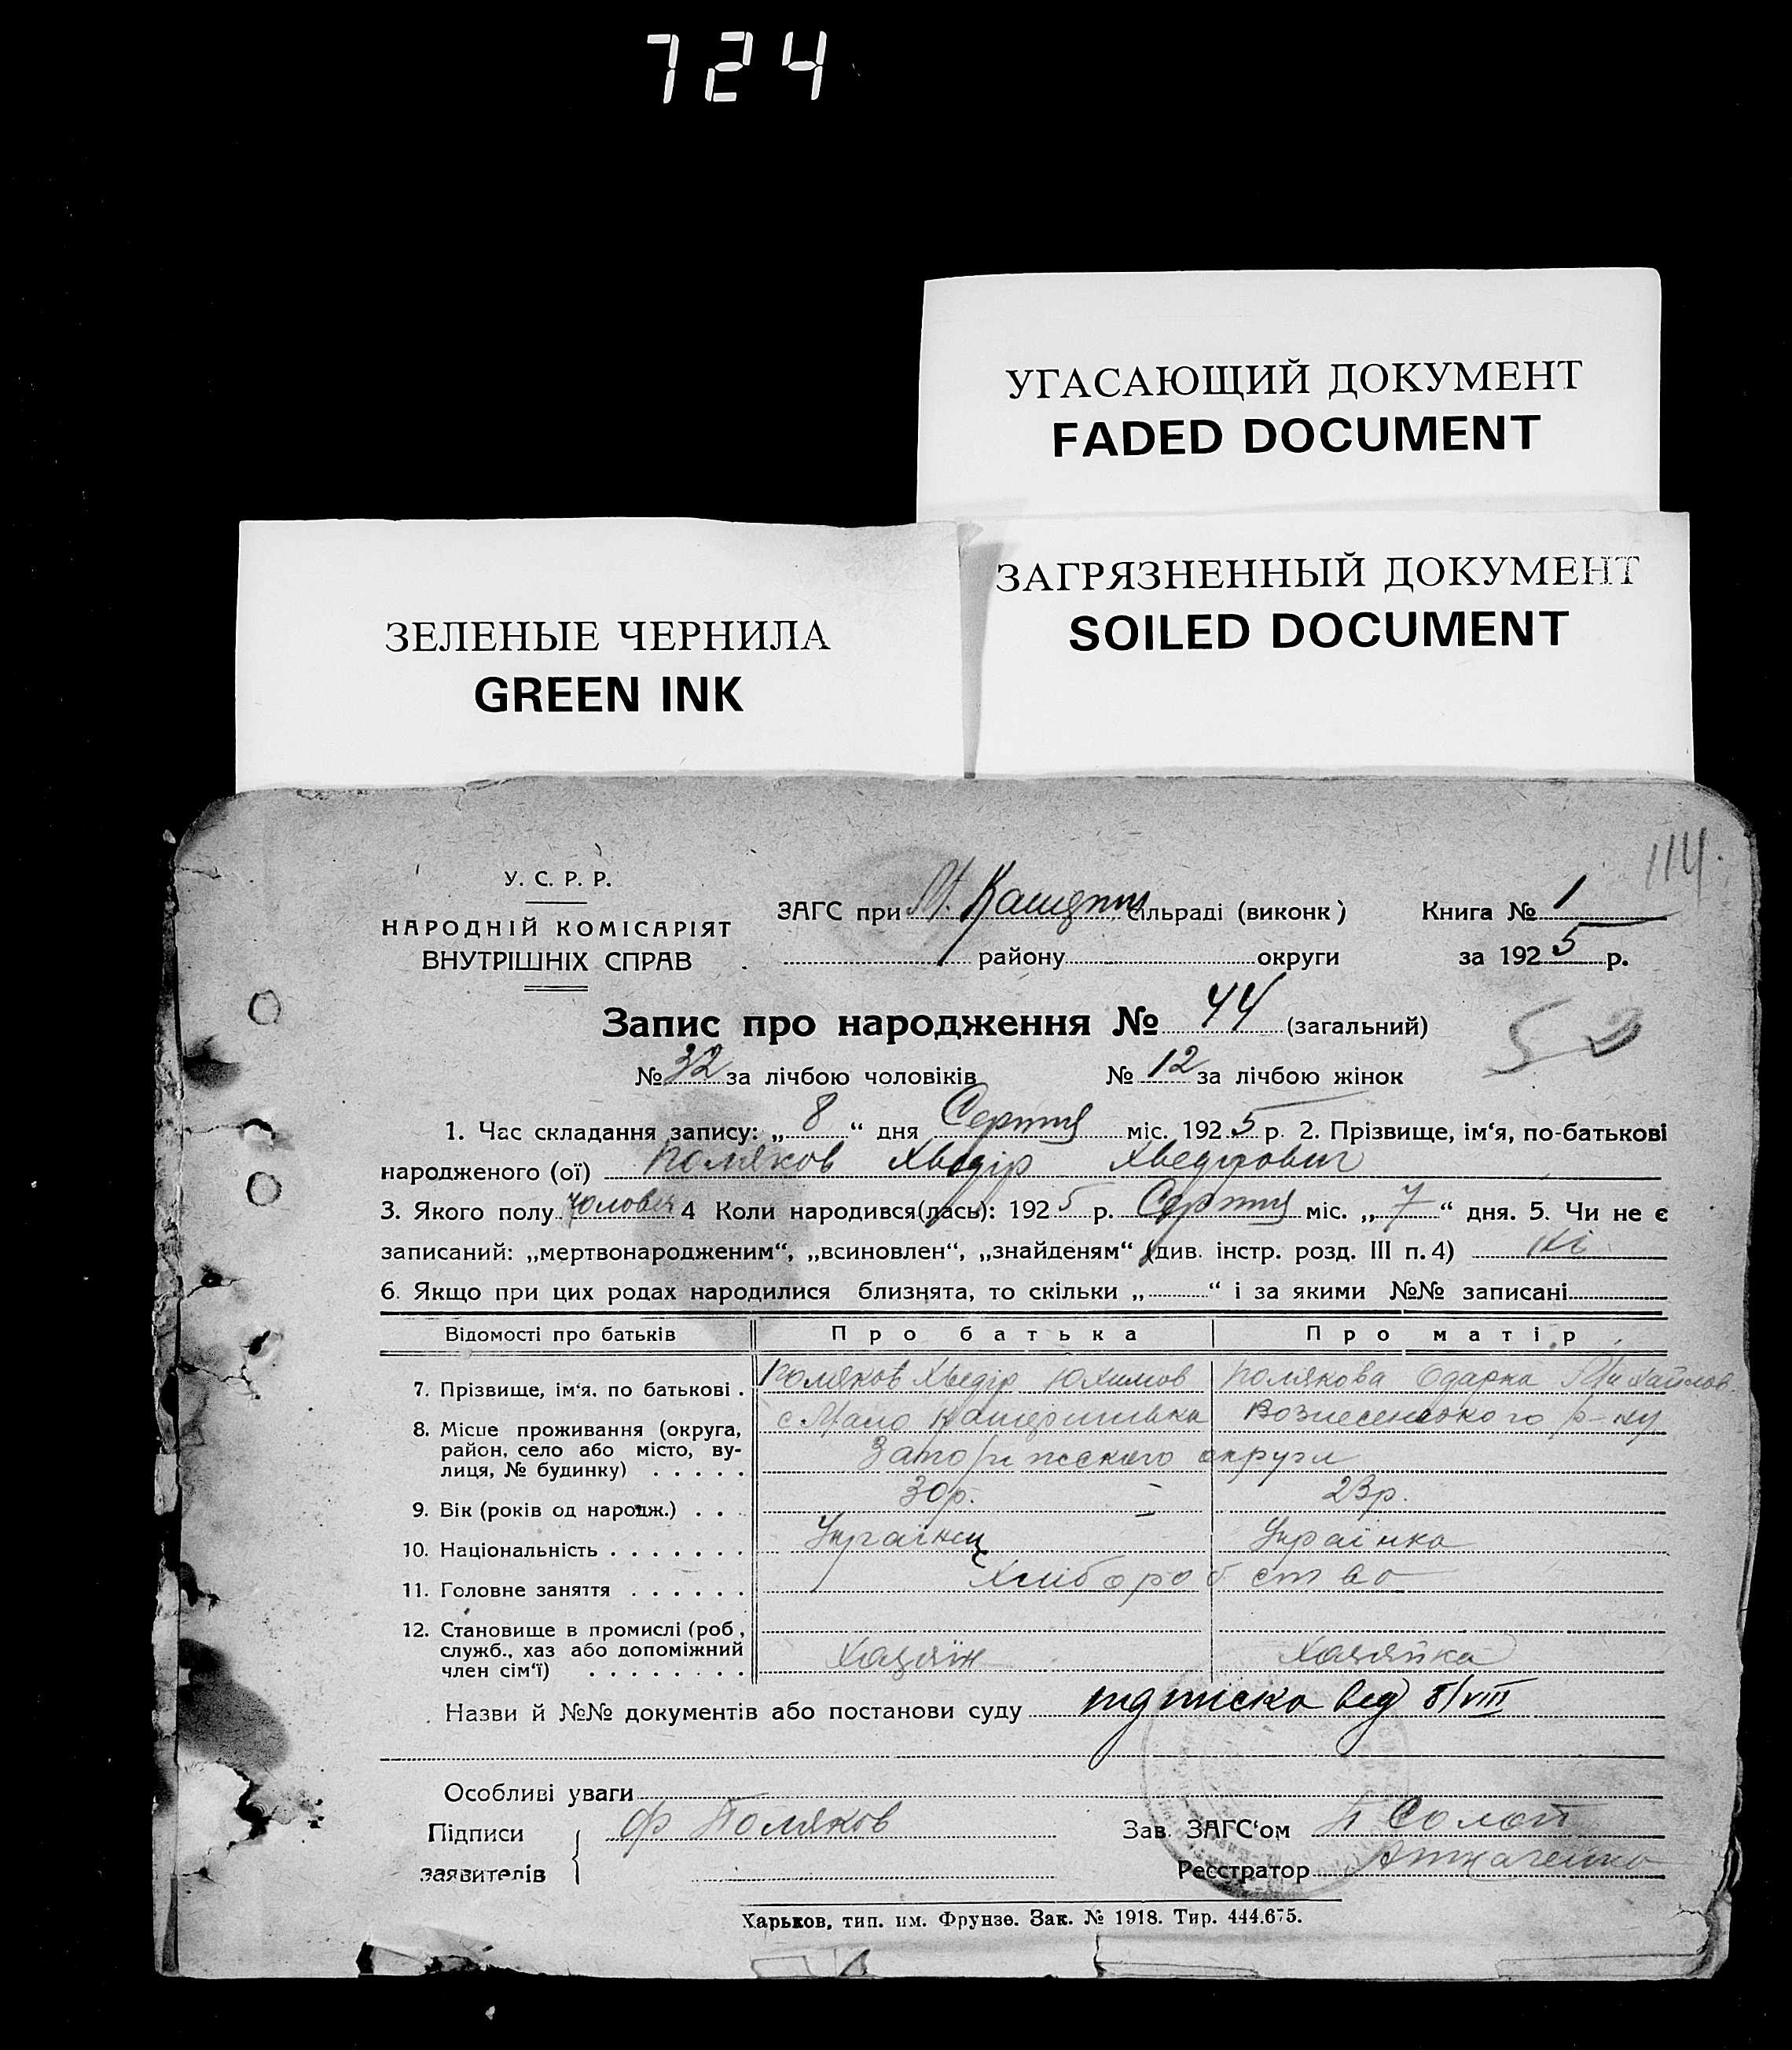 724
УГАСАЮЩИЙ ДОКУМЕНТ
FADED DOCUMENT
ЗАГРЯЗНЕННЫЙ ДОКУМЕНТ
SOILED DOCUMENT
ЗЕЛЕНЫЕ ЧЕРНИЛА
GREEN INK
114
У. С. Р. Р.
НАРОДНІЙ КОМІСАРІЯТ
ВНУТРІШНІХ СПРАВ
ЗАГС при М. сільраді (виконк) Книга № 1
району округи за 1925 р.
Запис про народження № 44 (загальний)
№ 32 за лічбою чоловіків № 12 за лічбою жінок
50
1. Час складання запису: „8“ дня Серпня міс. 1925 р. 2. Прізвище, ім'я, по-батькові
народженого (ої) Поляков Хведір Хведорович
3. Якого полу чоловіч 4 Коли народився(лась): 1925 р. Серпня міс. „7“ дня. 5. Чи не є
записаний: „мертвонародженим“, „всиновлен“, „знайденям“ (див. інстр. розд. III п. 4) Ні
6. Якщо при цих родах народилися близнята, то скільки „ “ і за якими №№ записані
Відомості про батьків Про батька Про матір
7. Прізвище, ім'я. по батькові . Поляков Хведір Юхимов Полякова Одарка Михайлов.
8. Місце проживання (округа, район, село або місто, вулиця, № будинку) с. Мало Катеринівка Вознесенського р-ну
Запорізського округи
9. Вік (років од народж.) . . . 30 р. 23 р.
10. Національність . . . . . . . Українец Українка
11. Головне заняття . . . . . . Хліборобство
12. Становище в промислі (роб, служб., хаз або допоміжний член сім'ї) . . . . . . . . Хазяїн Хазяйка
Назви й №№ документів або постанови суду підписка від 8/VIII
Особливі уваги
Підписи заявителів Ф Поляков
Зав. ЗАГС'ом
Реєстратор Ткаченко
Харьков, тип. им. Фрунзе. Зак. № 1918. Тир. 444.675.